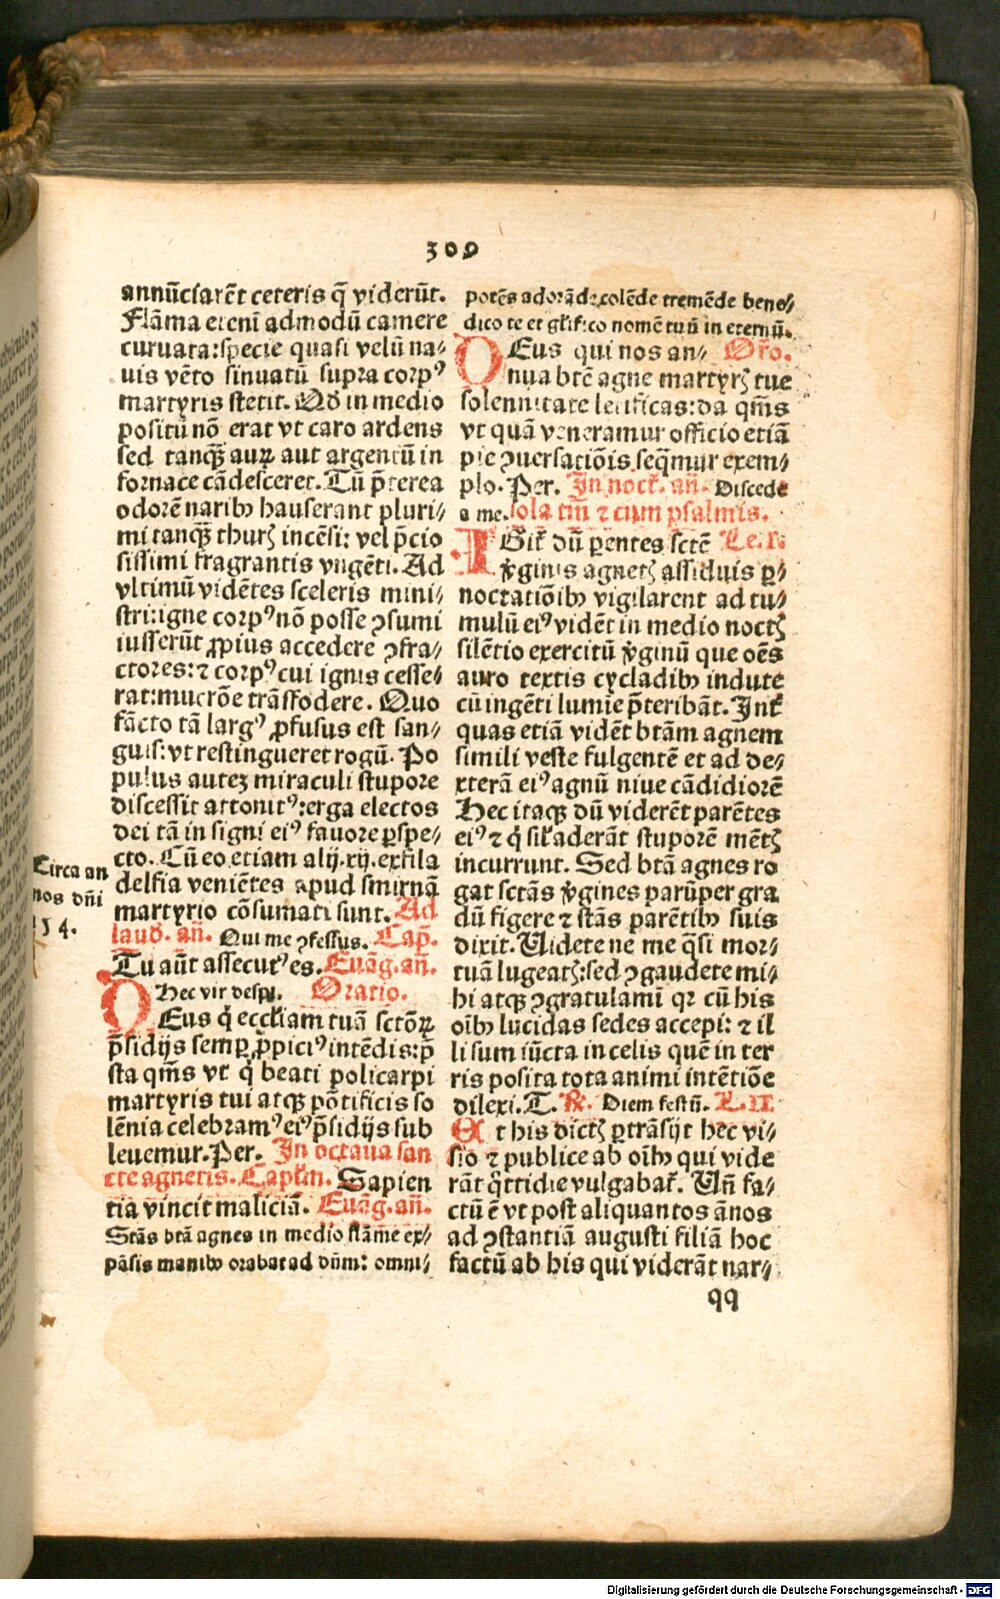 309
annūciarēt ceteris q̄ viderūt.
Flāma etenī admodū camere
curuata:specie quasi velū na⸗
uis vēto sinuatū supra corpꝰ
martyris stetit. Qđ in medio
positū nō erat vt caro ardens
sed tanqꝫ auꝝ aut argentū in
fornace cādesceret. Tū p̄terea
odorē naribꝰ hauserant pluri⸗
mi tanqꝫ thurꝭ incēsi: vel p̄cio
sissimi fragrantis vngēti. Ad
vltimū vidētes sceleris mini⸗
stri:igne corpꝰ nō posse ꝯsumi
iusserūt ꝓpius accedere ꝯfra⸗
ctores:⁊ corpꝰ cui ignis cesse⸗
rat:mucrōe trāsfodere. Quo
fācto tā largꝰ ꝓfusus est san⸗
guis:vt restingueret rogū. Po
pulus autez miraculi stupore
discessit attonitꝰ:erga electos
dei tā in signi eiꝰ fauore ꝑspe⸗
cto. Cū eo etiam alij.xij.ex fila
delfia veniētes apud smirnā
martyrio cōsumati sunt. Ad
laud. añ. Qui me ꝯfessus. Cap̄.
Tu aūt assecutꝰ es. Euāg. añ.
Hec vir despi. Oratio.
DEus q̇ eccłiam tuā sctōꝝ
p̄sidijs semꝑ ꝓpiciꝰ intēdis:p̄
sta qm̄s vt q̇ beati policarpi
martyris tui atqꝫ pōtificis so
lēnia celebramꝰ eiꝰ p̄sidijs sub
leuemur. Per. In octaua san
cte agnetis. Capłm. Sapien
tia vincit maliciā. Euāg. añ.
Stās btā agnes in medio flām̄e ex⸗
pāsis manibꝰ orabat ad dūm: omni⸗
Circa an
nos dñi
154.
potēs adorāde colēde tremēde bene⸗
dico te et głifico nomē tuū in eternū.
DEus qui nos an⸗ Oro.
nua btē agne martyrꝭ tue
solennitate letificas:da qm̄s
vt quā veneramur officio etiā
pie ꝯuersatiōis seqmur exem⸗
plo. Per. In noct. añ. Discede
a me. sola tm̄ ⁊ cum psalmis.
IGit̄ dū ꝑentes sctē Le. I.
v̄ginis agnetꝭ assiduis ꝑ⸗
noctatiōibꝰ vigilarent ad tu⸗
mulū eiꝰ vidēt in medio noctꝭ
silētio exercitū v̄ginū que oēs
auro textis cycladibꝰ indute
cū ingēti lumīe p̄teribāt. Int̄
quas etiā vidēt btām agnem
simili veste fulgentē et ad de⸗
xterā eiꝰ agnū niue cādidiorē
Hec itaqꝫ dū viderēt parētes
eiꝰ ⁊ q̇ sił aderāt stuporē mētꝭ
incurrunt. Sed btā agnes ro
gat sctās v̄gines parūper gra
dū figere ⁊ stās parētibꝰ suis
dixit. Videte ne me q̄si mor⸗
tuā lugeatꝭ:sed ꝯgaudete mi⸗
hi atqꝫ ꝯgratulaminī qꝛ cū his
oībꝰ lucidas sedes accepi: ⁊ il
li sum iūcta in celis quē in ter
ris posita tota animi intētiōe
dilexi. T. ℟. Diem festū. L. II
Et his dictꝭ ꝑtrāsijt hec vi⸗
sio ⁊ publice ab oībꝰ qui vide
rāt q̇ttidie vulgabat̄. Uñ fa⸗
ctū ē vt post aliquantos ānos
ad ꝯstantiā augusti filiā hoc
factū ab his qui viderāt nar⸗
qq
Digitalisierung gefördert durch die Deutsche Forschungsgemeinschaft - DFG